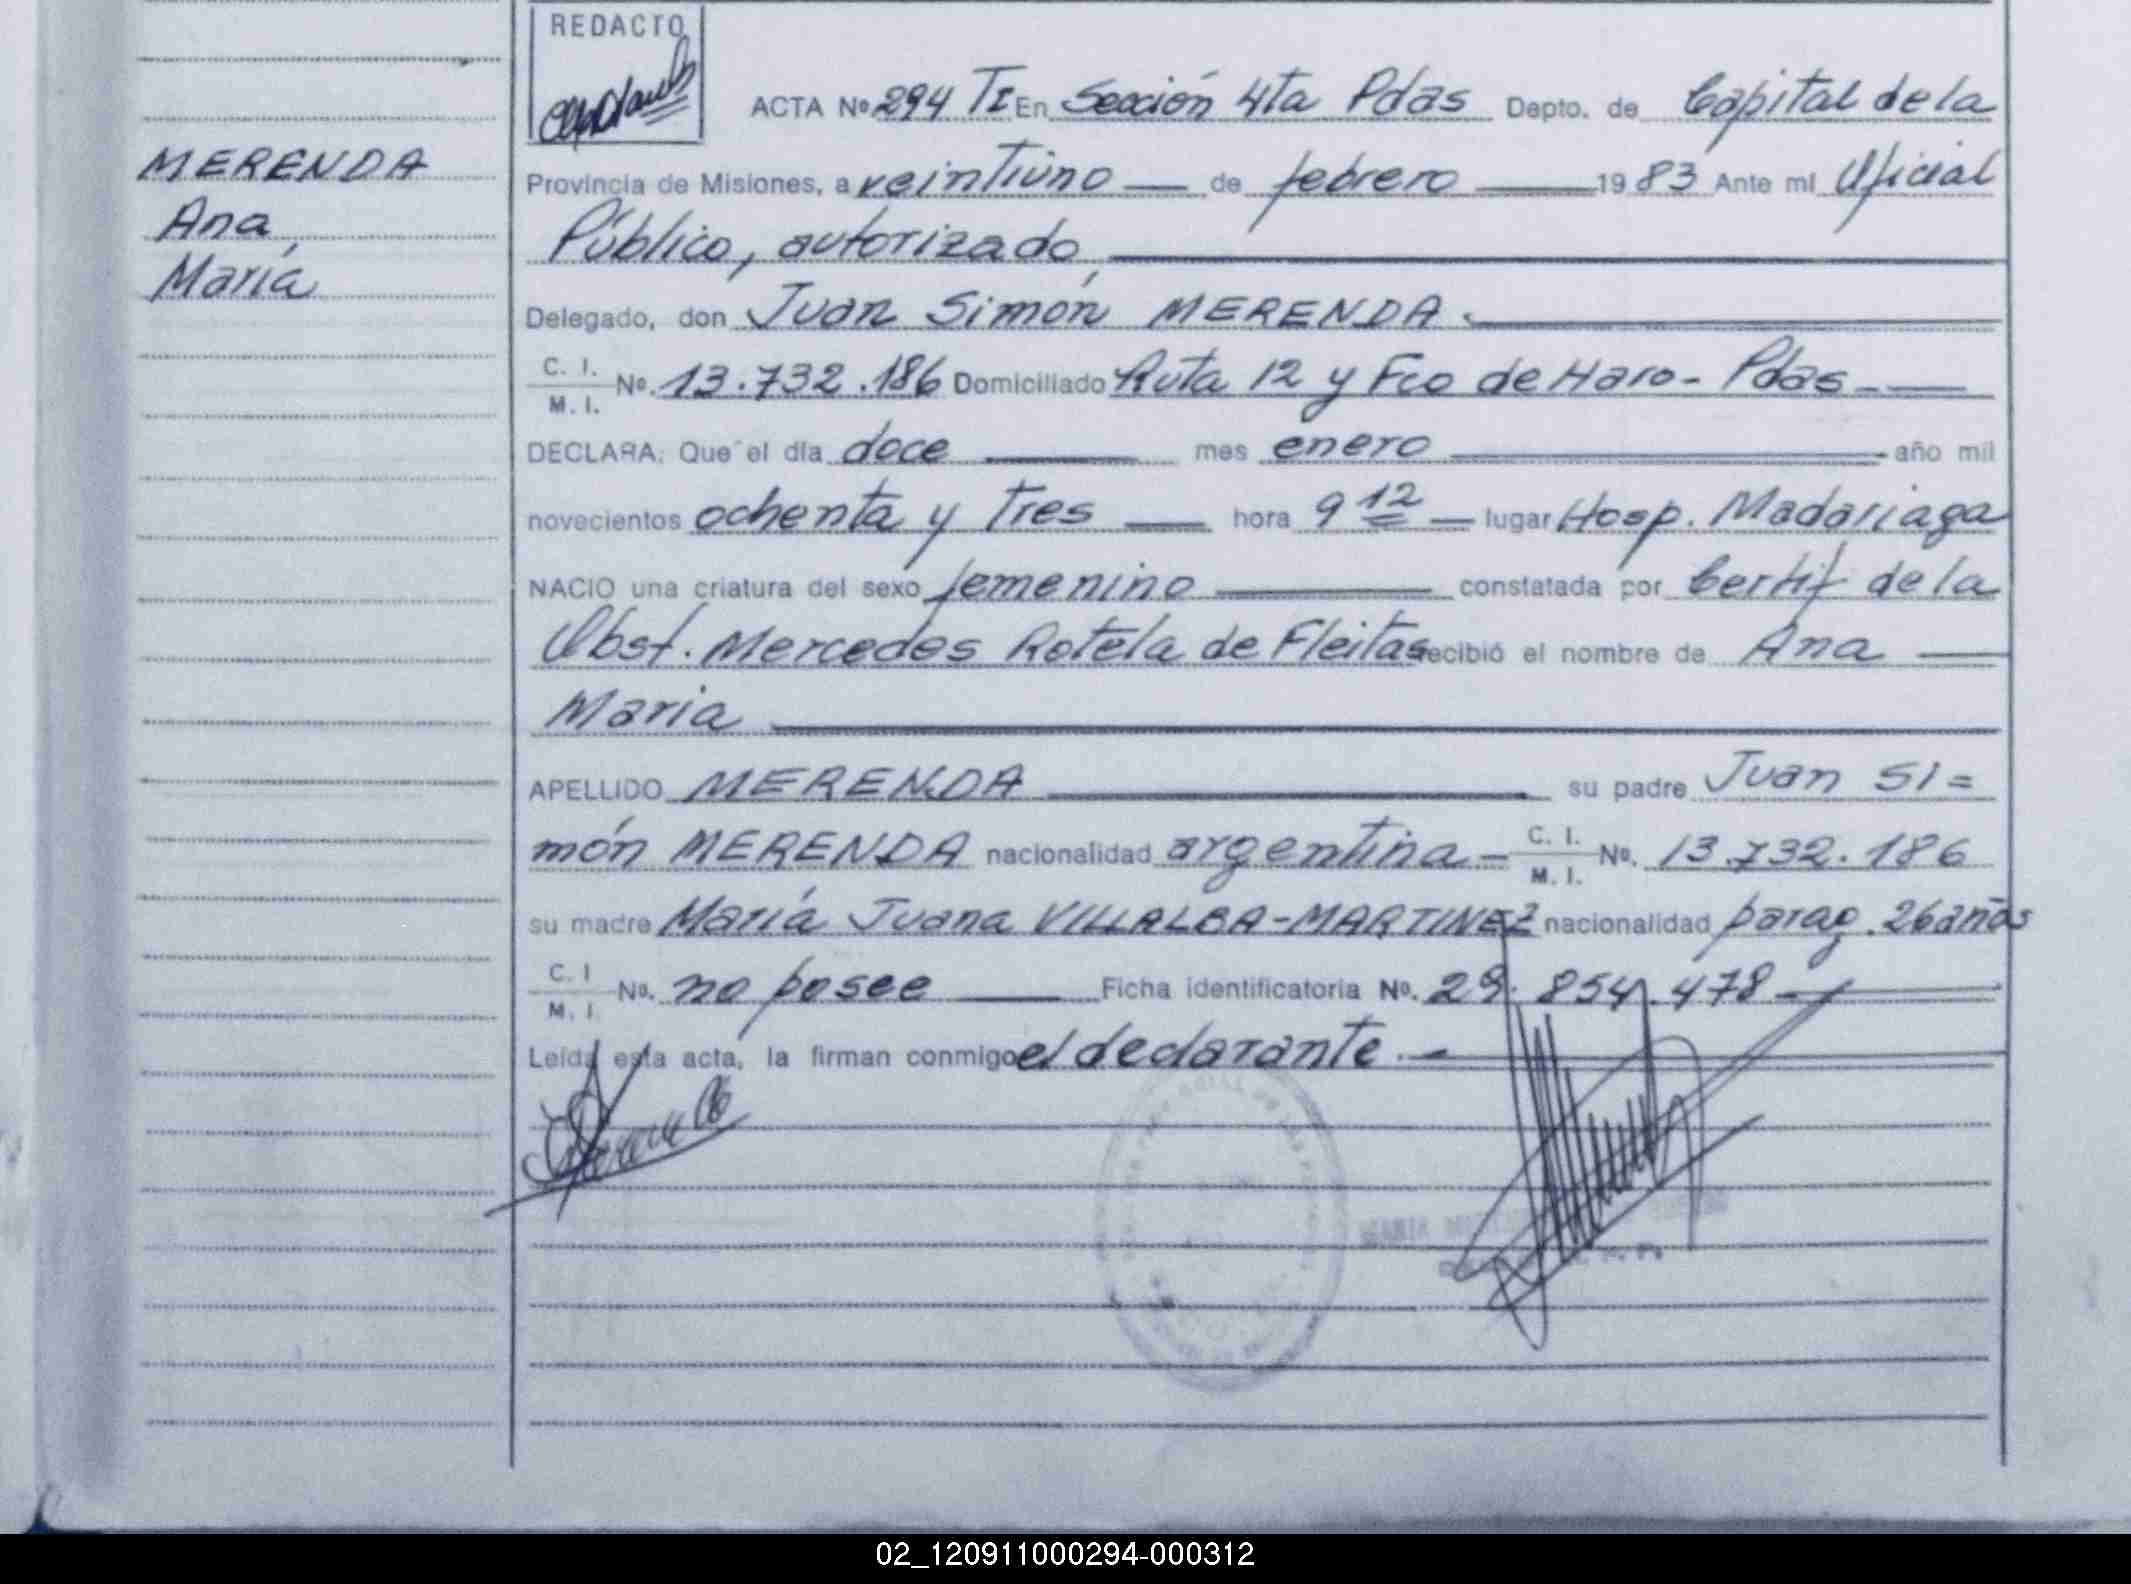 REDACTO
ACTA Nº 294 TI En Sección 4ta Pdas Depto. de Capital de la
MERENDA
Ana
María
Provincia de Misiones, a veintiuno de febrero 1983 Ante mí Oficial
Público, autorizado,
Delegado, don Juan Simón MERENDA.
C. I.
M. I.
Nº. 13.732.186 Domiciliado Ruta 12 y Fco de Haro - Pdas -
DECLARA: Que el día doce mes enero año mil
novecientos ochenta y Tres hora 9 12 lugar Hosp. Madariaga
NACIO una criatura del sexo femenino constatada por Certif de la
Obst. Mercedes Rotela de Fleitas recibió el nombre de Ana
Maria
APELLIDO MERENDA su padre Juan Si=
món MERENDA nacionalidad argentina - C. I. M. I. Nº. 13.732.186
su madre María Juana VILLALBA-MARTINEZ nacionalidad parag. 26 años
C. I. M. I. Nº. no posee Ficha identificatoria Nº. 29.854.478 -
Leída esta acta, la firman conmigo el declarante. -
02_120911000294-000312